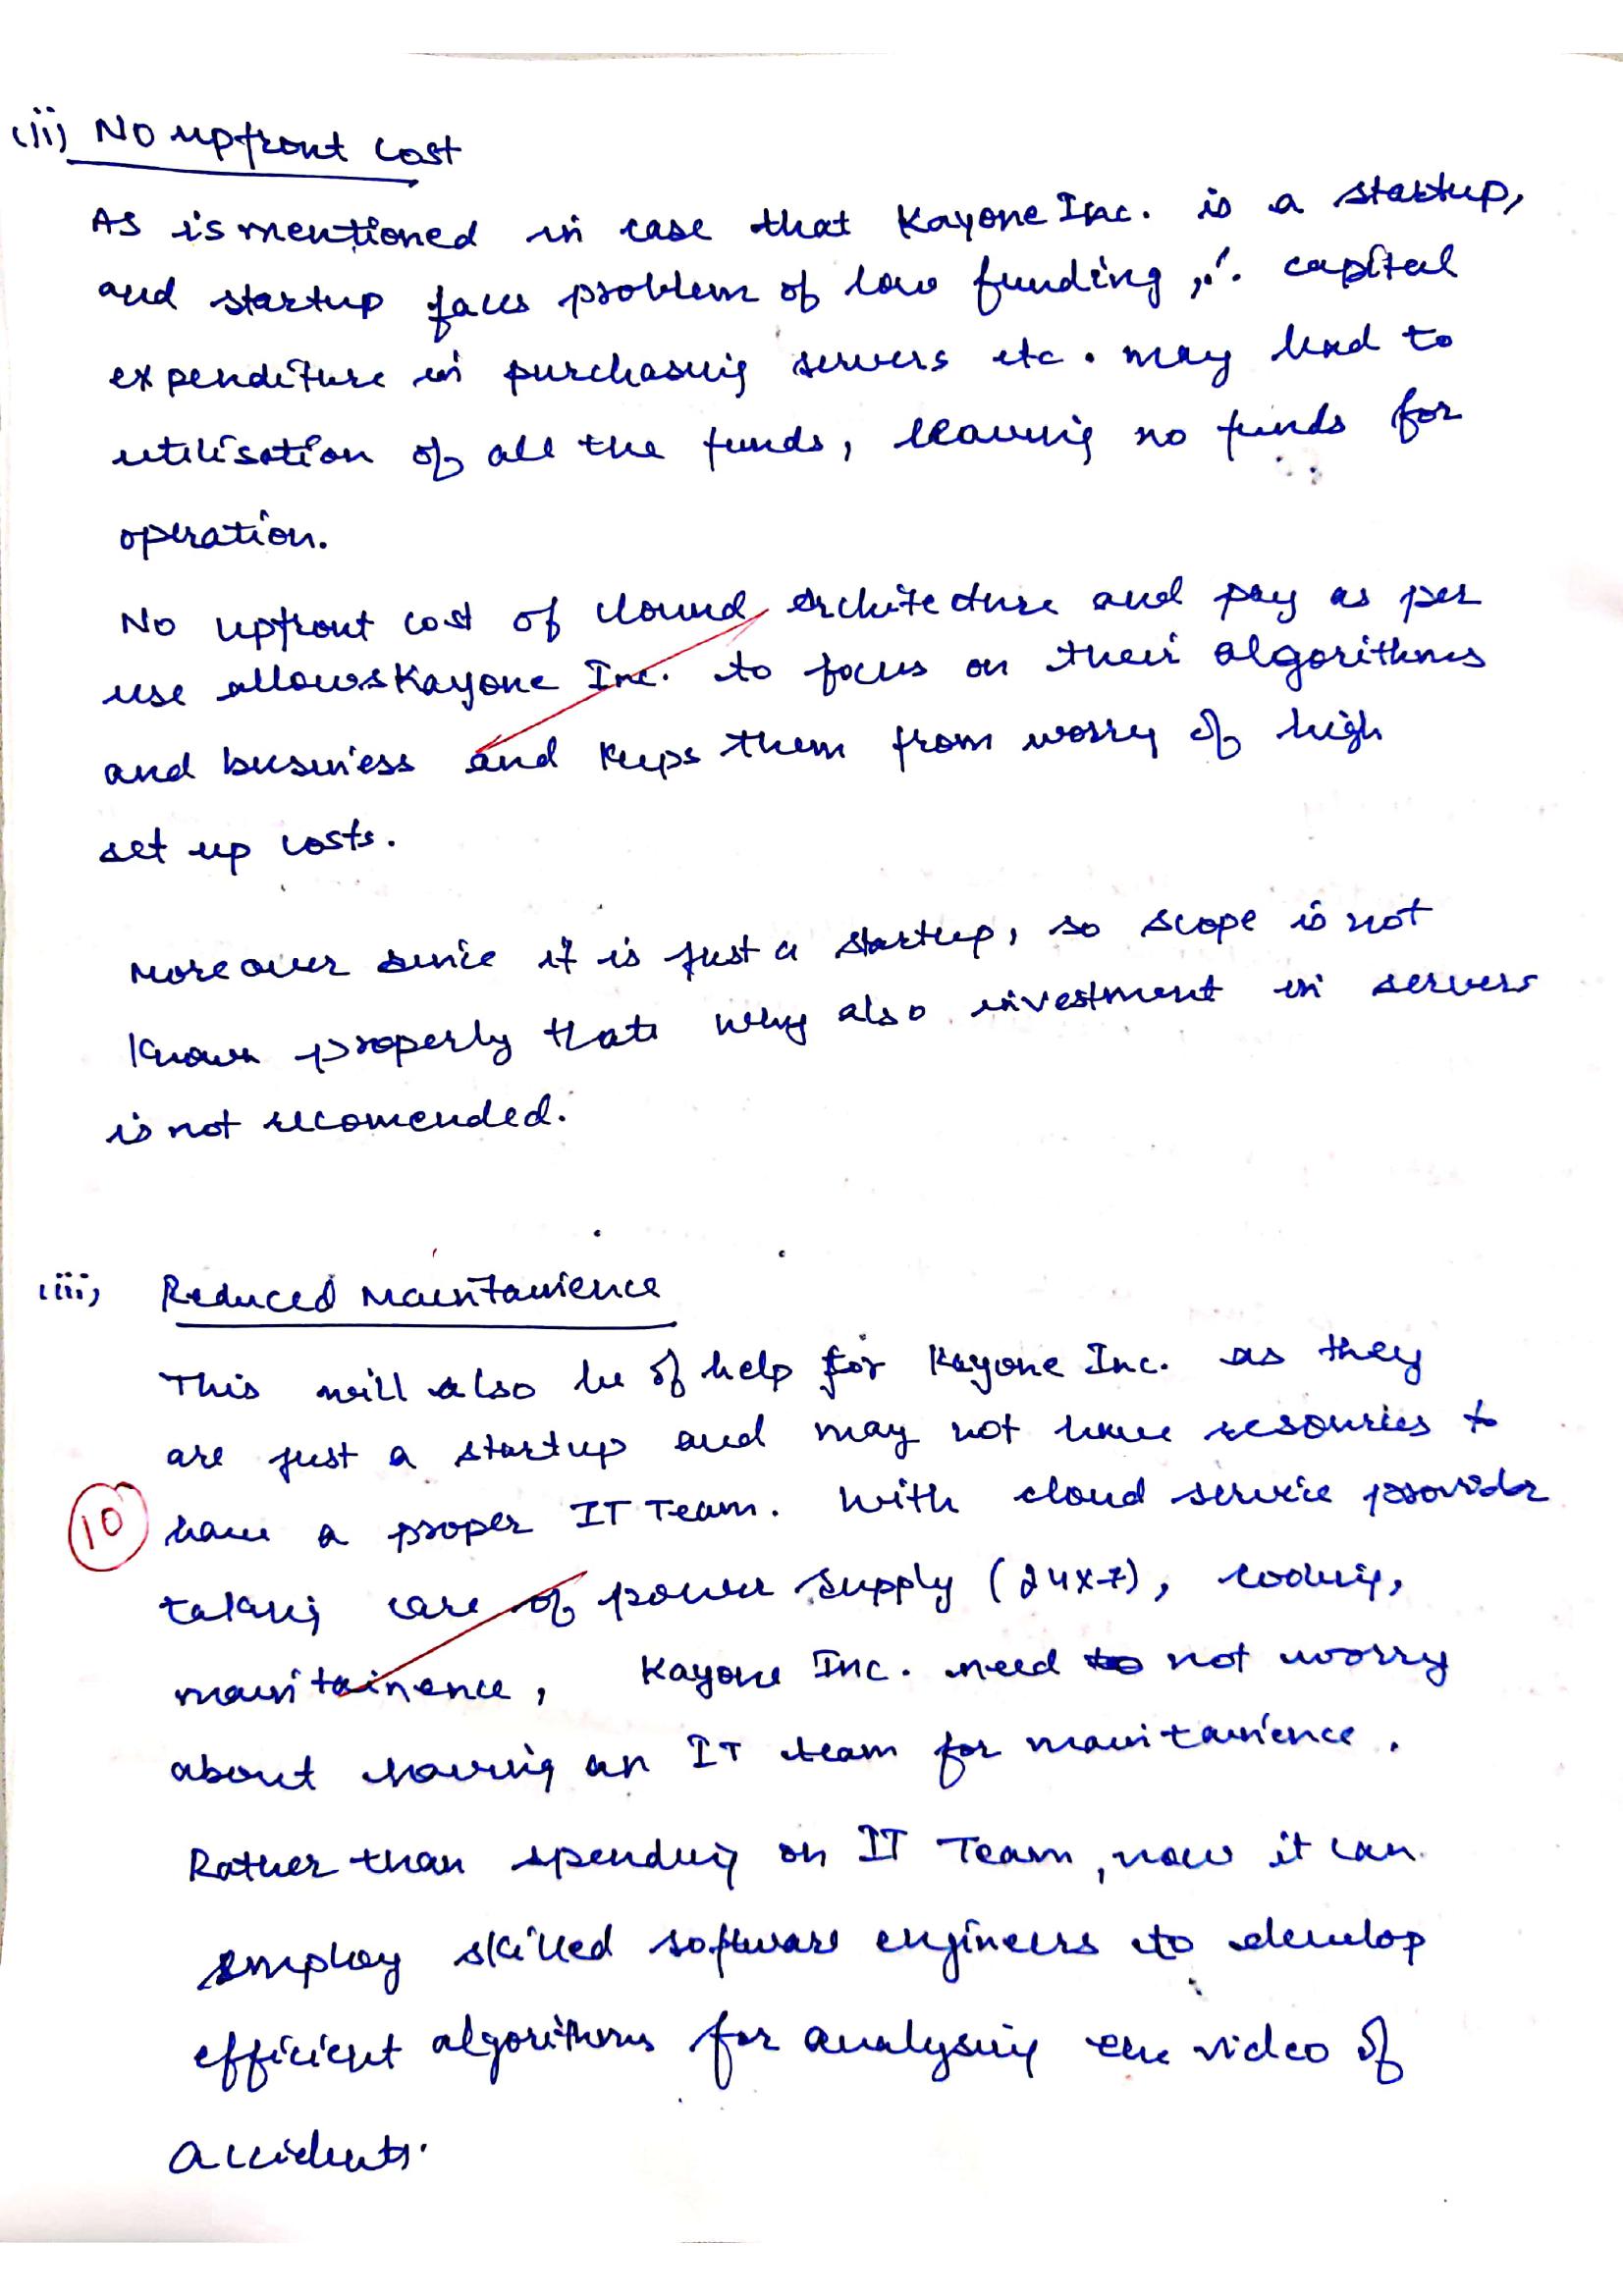 (ii) No upfront cost
As is mentioned in case that Kayone Inc. is a startup,
and startup faces problem of low funding, ∴ capital
expenditure in purchasing servers etc. may lead to
utilisation of all the funds, leaving no funds for
operation.
No upfront cost of clound architecture and pay as per
use allows Kayone Inc. to focus on their algorithms
and business and keeps them from worry of high
set up costs.
Moreover since it is just a startup, so scope is not
known properly thats why also investment in servers
is not recomended.
(iii) Reduced Maintainence
This will also be of help for Kayone Inc. as they
are just a startup and may not have resources to
10 have a proper IT Team. With cloud service provider
taking care of power supply (24x7), cooling,
maintainence, Kayone Inc. need to not worry
about having an IT team for maintainience.
Rather than spending on IT Team, now it can
employ skilled software engineers to develop
efficient algorithms for analysing the video of
accidents.